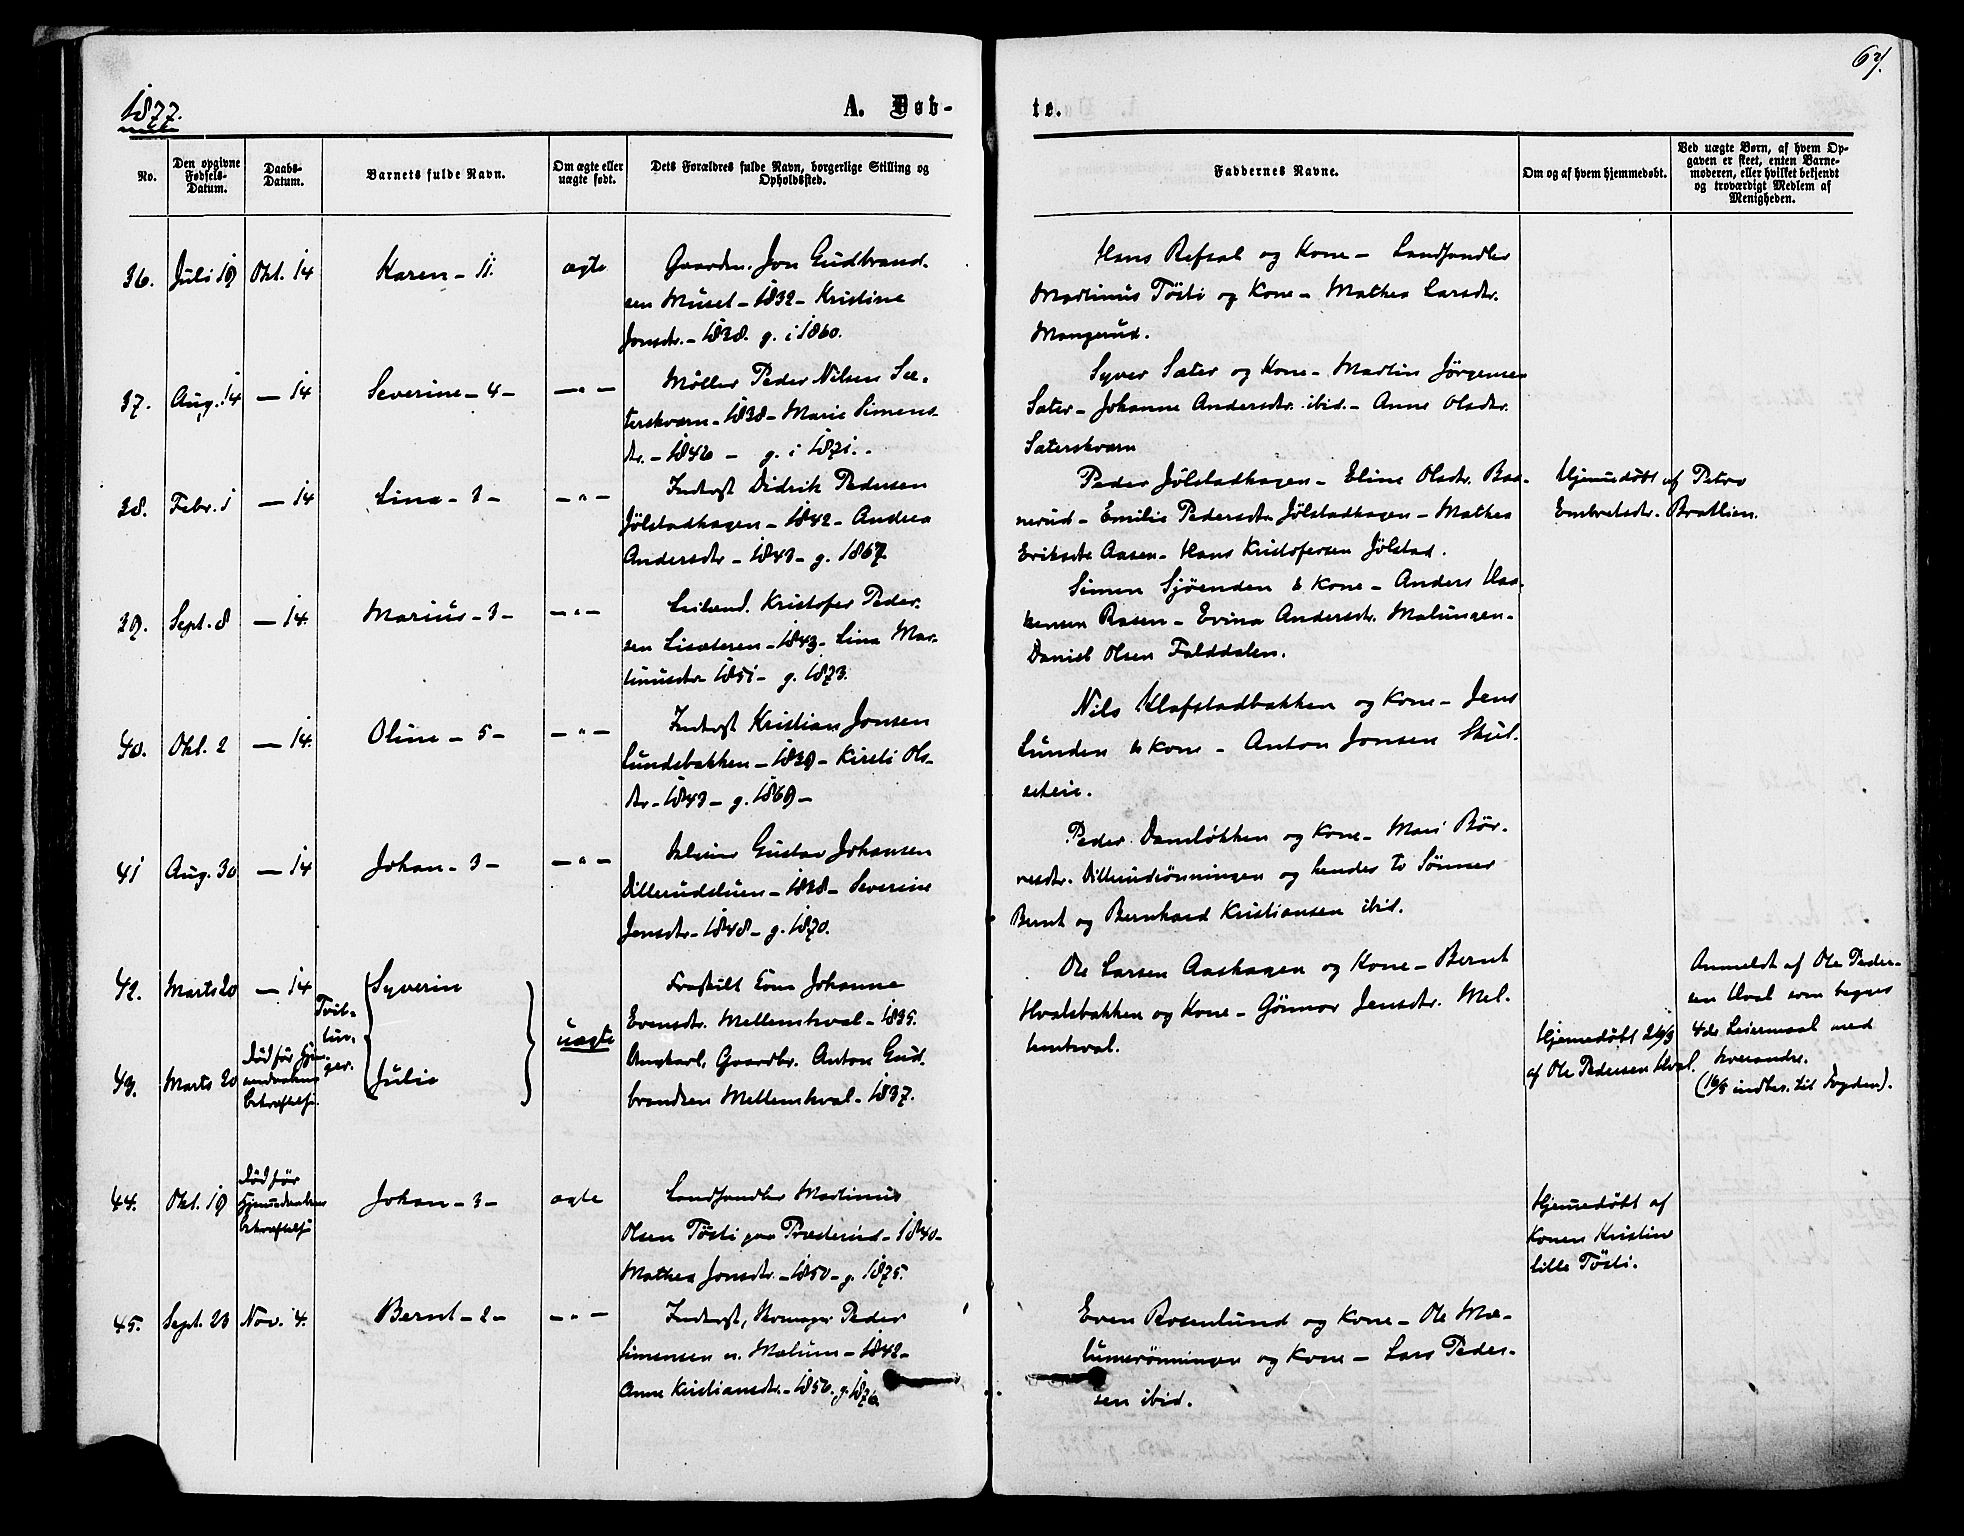 67.
1877.
A. Døb-
te.
No.
Den opgivne Fødsels-Datum.
Daabs-Datum.
Barnets fulde Navn.
Om ægte eller uægte født.
Dets Forældres fulde Navn, borgerlige Stilling og Opholdssted.
Faddernes Navne.
Om og af hvem hjemmedøbt.
Ved uægte Børn, af hvem Op-
gaven er skeet, enten Barne-
moderen, eller hvilket bekjendt
og troværdigt Medlem af
Menigheden.
36. Juli 19 Okt. 14 Karen - 11. ægte
Gaardm. Jon Gudbrand-
sen Muset - 1832 - Kristine
Jonsdtr. - 1838. g. i 1860.
Hans Refsal og Kone - Landhandler
Martinus Tösti og Kone - Mathea Larsdtr.
Mangerud.
37. Aug. 14 — 14 Severine - 4 - — " —
Møller Peder Nilsen Sæ-
terskværn - 1838 - Marie Simens-
dtr. - 1846 - g. i 1871.
Syver Sæter og Kone - Martin Jörgensen
Sæter - Johanne Andersdtr. ibid. - Anne Olsdtr.
Sæterskværn
38. Febr. 1 — 14 Lina - 3 - — " —
Inderst Didrik Pedersen
Jølstadhagen - 1842 - Andrea
Andersdtr - 1843 - g. 1867.
Peder Jølstadhagen - Eline Olsdtr. Baa-
nerud - Emilie Pedersdtr Jølstadhagen - Mathea
Eriksdtr Aasen - Hans Kristofersen Jølstad.
Hjemmedøbt af Petra
Embretsdtr. Bratlien.
39. Sept. 8 — 14. Marius - 3 - — " —
Leilænd. Kristofer Peder-
sen Lisæteren - 1843 - Lina Mar-
tinusdtr 1851 - g. 1873.
Simen Sjøenden & Kone - Anders Haa-
kensen Rasen - Evina Andersdtr. Malungen -
Daniel Olsen Falddalen.
40. Okt. 2 — 14. Oline - 5 - — " —
Inderst Kristian Jonsen
Lundsbakken - 1839 - Kirsti Ols-
dtr - 1843 - g. 1869 -
Nils Klafstadbakken og Kone - Jens
Lunden & Kone - Anton Jonsen Skul-
seteie.
41 Aug. 30 — 14 Johan - 3 - — " —
Gustav Johansen
Dillerudsluen - 1838 - Severine
Jensdtr - 1848 - g. 1870.
Peder Damløkken og Kone - Mari Bör-
resdtr. Dillerudrönningen og hendes to Sönner
Bernt og Bernhard Kristiansen ibid.
42. Marts 20 — 14 Tvil-
lin-
ger. Syverin
uægte
Fraskilt Kone Johanne
Evensdtr. Mellemhval - 1835.
Ungkarl, Gaardbr. Anton Gud-
brandsen Mellemhval - 1837.
Ole Larsen Aashagen og Kone - Bernt
Hvalsbakken og Kone - Gønnor Jensdtr. Mel-
lemhval.
Anmeldt af Ole Peder-
sen Hval som begges
4de Leiermaal med
hverandre.
(16/4 indber. til Fogden).
43. Marts 20 Död før Hjem-
medaabens
bekræftelse. Julie
Hjemmedöbt 24/3
af Ole Pedersen Hval.
44. Okt. 19 Död før
Hjemmedaabens
bekræftelse Johan - 3 - ægte
Landhandler Martinus
Olsen Tösti paa Træsterud - 1840 -
Mathea Jonsdtr. - 1850 - g. 1875.
Hjemmedöbt af
Konen Kristine
lille Tösti.
45. Sept. 23 Nov. 4. Bernt - 2 - — " —
Inderst, Skomager Peder
Simensen u. Mælum - 1842 -
Anne Kristiansdtr. - 1850. g. 1876.
Even Rosenlund og Kone - Ole Mæ-
lumsrönningen og Kone - Lars Peder-
sen ibid.